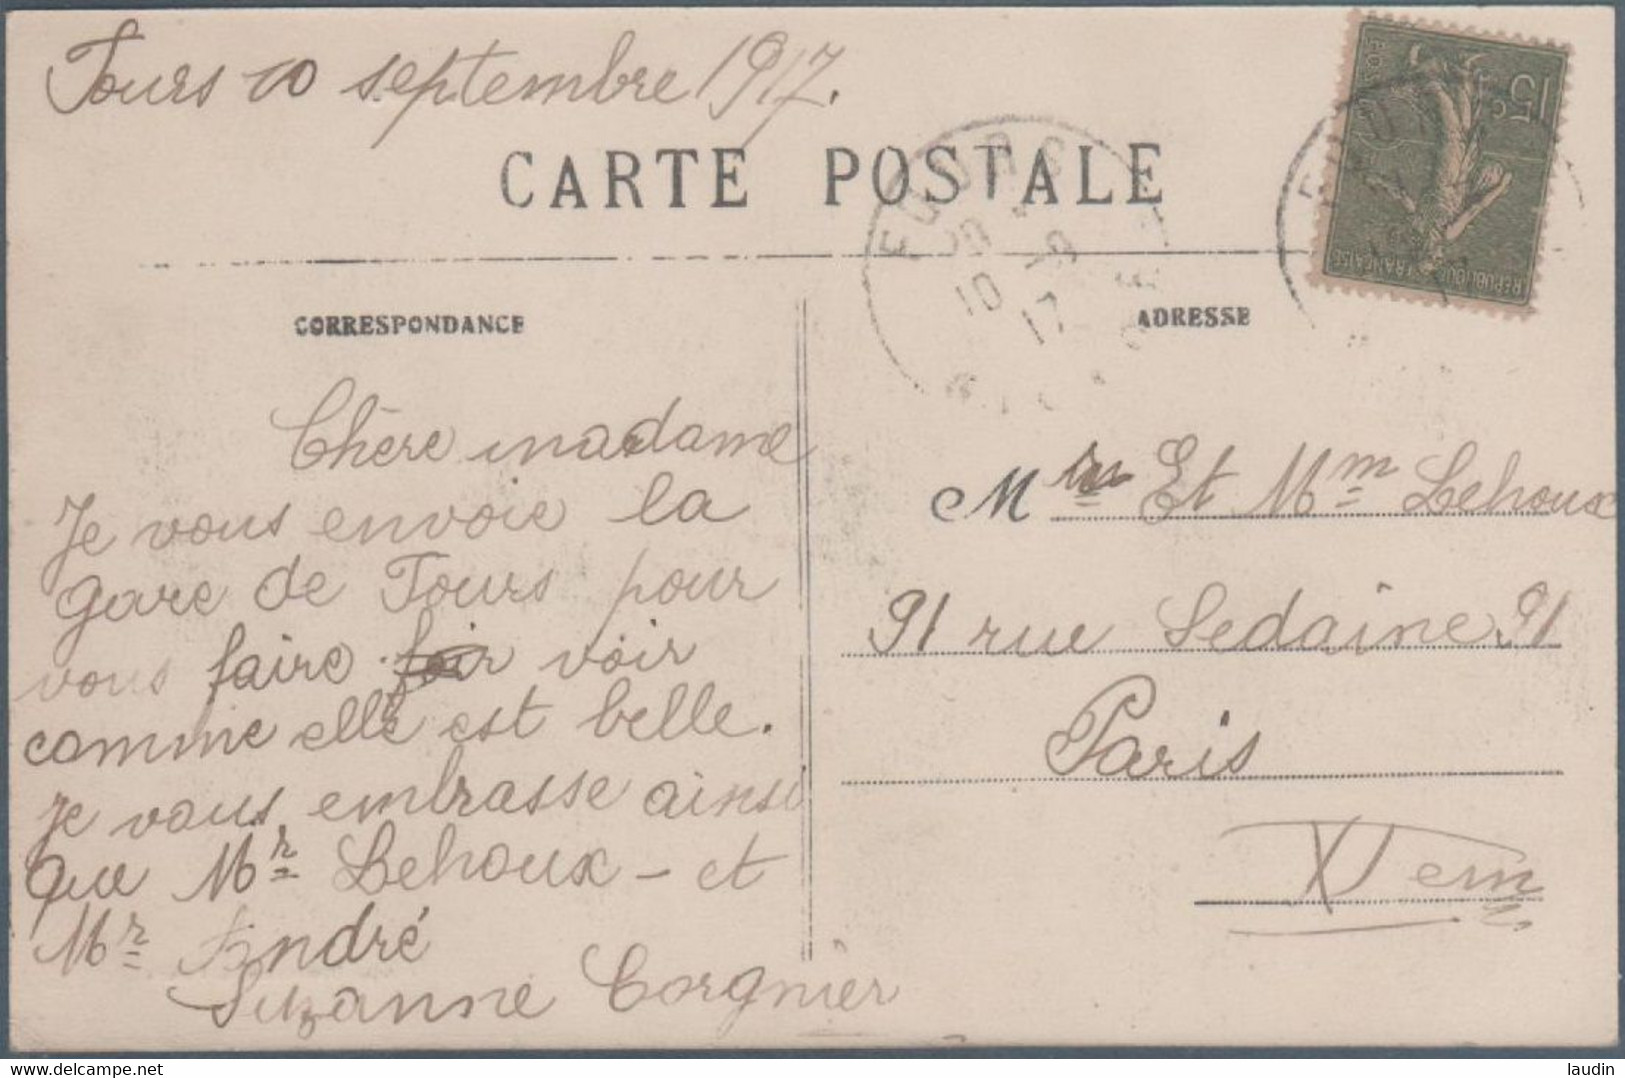 Tours 10 septembre 1917.
CARTE POSTALE
15c
POSTES
REPUBLIQUE FRANÇAISE
TOURS
10 - 9
17
CORRESPONDANCE
ADRESSE
Chère madame
Je vous envoie la
gare de Tours pour
vous faire voir
comme elle est belle.
Je vous embrasse ainsi
que Mr Lehoux - et
Mr André
Suzanne Corgnier
Mr Et Mm Lehoux
91 rue Sedaine 91
Paris
XI em
delcampe.net
laudin